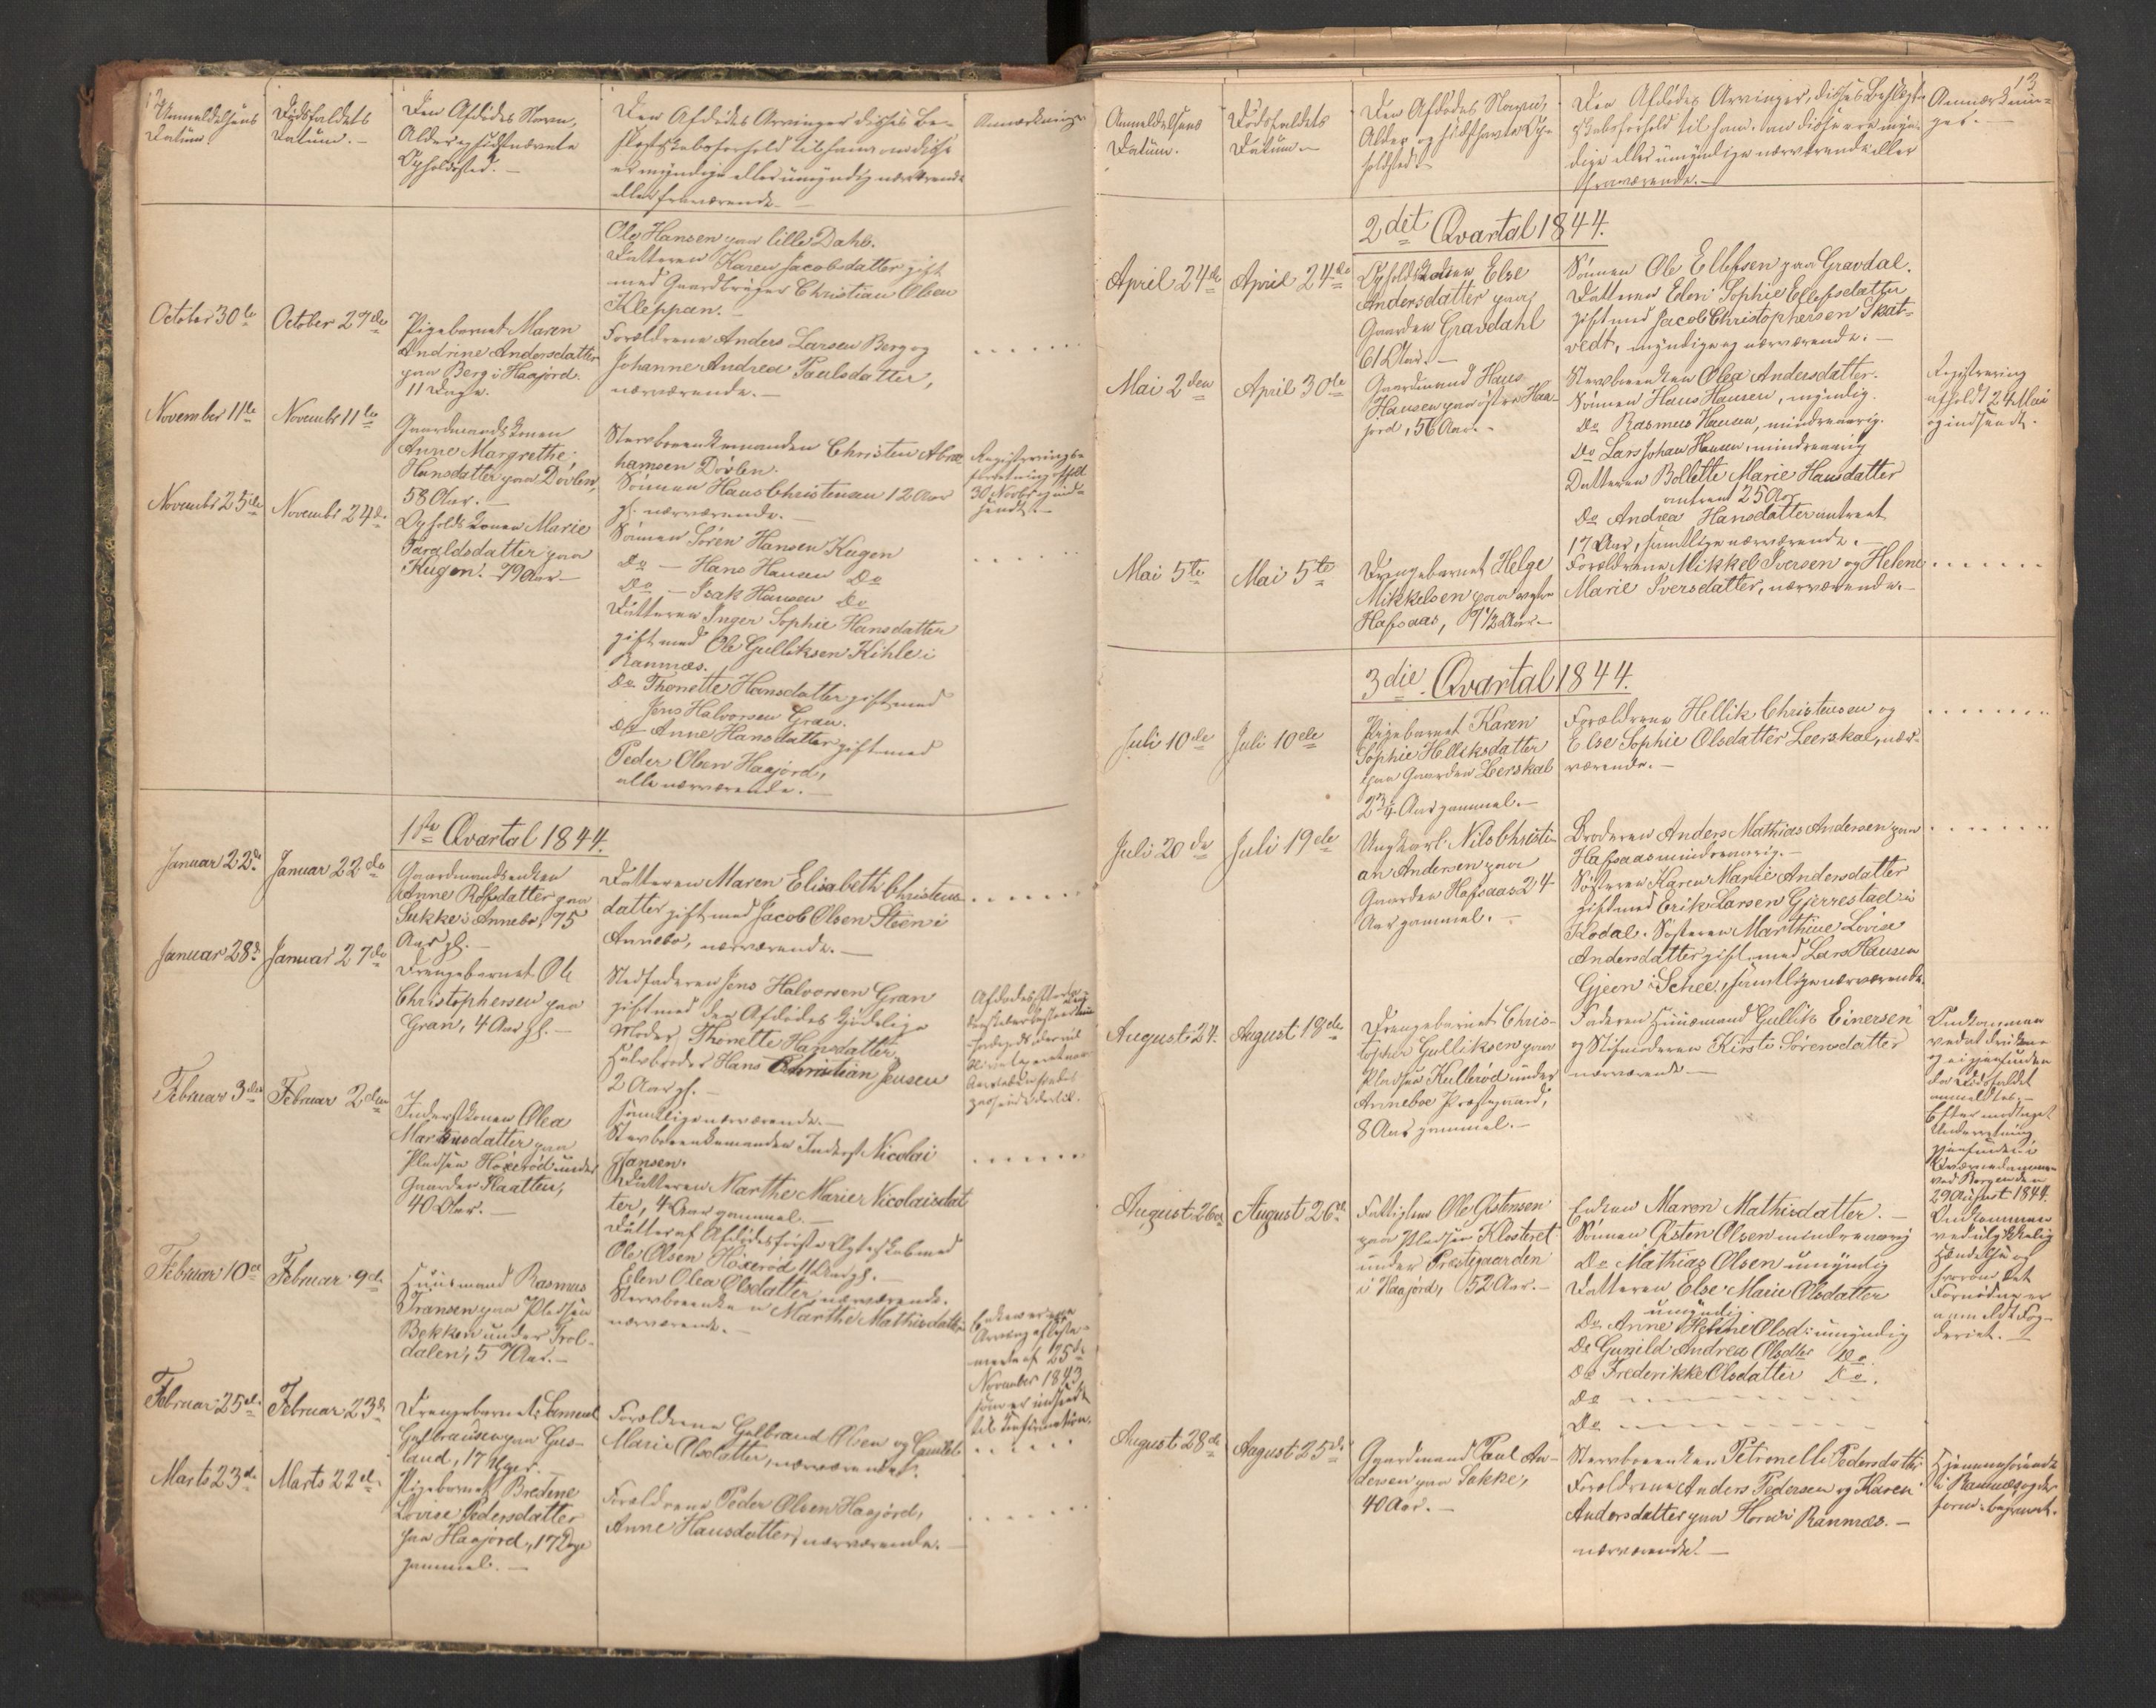 12
Anmeldelsens
Datum.
Dødsfaldets
Datum. –
Den Afdødes Navn,
Alder og sidstnævnte
Opholdssted. –
Den Afdødes Arvinger disses Be-
slægtskabsforhold til ham om disse
er myndige eller umyndig nærværende
eller fraværende. –
Anmærkninger
Ole Hansen paa lille Dahl.
Datteren Karen Jacobsdatter gift
med Gaardbruger Christian Olsen
Kleppan. –
October 30te
October 27de
Pigebarnet Maren
Andrine Andersdatter
paa Berg i Haajord.
11 Dage.
Forældrene Anders Larsen Berg og
Johanne Andrea Paulsdatter,
nærværende. –
November 11te
Novembr 11te
Gaardmandskonen
Anne Margrethe
Hansdatter paa Dovlen,
58 Aar. –
Stervboenkemanden Christen Abra-
hamsen Dovlen.
Sønnen Hans Christensen 12 Aar
gl. nærværende. –
Registrerings-
forretning afholdt
30 Novbr og ind-
sendt. –
Novembr 25de
Novembr 24de
Opholdskonen Marie
Taraldsdatter paa
Kugen. 79 Aar –
Sønnen Søren Hansen Kugen
Do – Hans Hansen Do
Do – Isak Hansen Do
Datteren Inger Sophie Hansdatter
gift med Ole Gulliksen Kihle i
Ramnæs.
Do Thonette Hansdatter gift med
Jens Halvorsen Gran.
Do Anne Hansdatter gift med
Peder Olsen Haajord,
alle nærværende. –
1ste Qvartal 1844.
Januar 22de
Januar 22de
Gaardmandsenken
Anne Rolfsdatter paa
Sukke i Annebo, 75
Aar gl. –
Datteren Maren Elisabeth Christens-
datter gift med Jacob Olsen Steen i
Annebo, nærværende. –
Januar 28de
Januar 27de
Drengebarnet Ole
Christophersen paa
Gran, 4 Aar gl. –
Stedfaderen Jens Halvorsen Gran
gift med den Afdødes kjødelige
Moder, Thonette Hansdatter,
Halvbroder Hans Christian Jensen
2 Aar gl. –
samtlige nærværende. –
Afdødes
Februar 3die
Februar 2den
Inderstkonen Olea
Martinusdatter paa
Pladsen Hoxerod under
Gaarden Slaatten,
40 Aar. –
Stervboenkemanden Inderst Nicolai
Jansen.
Datteren Marthe Marie Nicolaisdat-
ter, 4 Aar gammel. –
Datter af Afdødes første Ægteskab med
Ole Olsen Hoxerod 11 Aar gl. –
Elen Olea Olsdatter, nærværende.
Februar 10de
Februar 9de
Huusmand Rasmus
Fransen paa Pladsen
Bekken under Trol-
dalen, 57 Aar. –
Stervboenken Marthe Mathisdatter
nærværende. –
Enken er
Arving efter Testa-
mente af 25de
November 1843
som er indsendt
til Confirmation.
Februar 25de
Februar 23de
Drengebarnet Samuel
Gulbrandsen paa Gus-
land, 17 Uger.
Forældrene Gulbrand Olsen og Gunild
Marie Olsdatter, nærværende.
Marts 23de
Marts 22de
Pigebarnet Bredine
Lovise Pedersdatter
paa Haajord, 17 Dage
gammel. –
Forældrene Peder Olsen Haajord,
Anne Hansdatter, nærværende. –
13
Anmeldelsens
Datum.
Dødsfaldets
Datum –
Den Afdødes Navn,
Alder og sidsthavte Op-
holdsted. –
Den Afdødes Arvinger, disses Beslægt-
skabsforhold til ham, om disse ere myn-
dige eller umyndige nærværende eller
fraværende. –
Anmærknin-
ger. –
2det Qvartal 1844.
April 24de
April 24de
Opholdskonen Else
Andersdatter paa
Gaarden Gravdahl
61 Aar. –
Sønnen Ole Ellefsen paa Gravdal.
Datteren Eden Sophie Ellefsdatter
gift med Jacob Christophersen Skat-
vedt, myndige og nærværende. –
Mai 2den
April 30te
Gaardmand Hans
Hansen paa østre Haa-
jord, 56 Aar. –
Stervboenken Olea Andersdatter.
Sønnen Hans Hansen, myndig.
Do Rasmus Hansen, mindreaarig.
Do Lars Johan Hansen, mindreaarig
Datteren Bollette Marie Hansdatter
omtrent 25 Aar
Do Andrea Hansdatter omtrent
17 Aar, samtlige nærværende. –
Registrering
afholdt 24 Mai
og indsendt.
Mai 5te
Mai 5te
Drengebarnet Helge
Mikkelsen paa
Hafsaas, 1/2 Aar –
Forældrene Mikkel Iversen og Helene
Marie Iversdatter, nærværende. –
3die Qvartal 1844.
Juli 10de
Juli 10de
Pigebarnet Karen
Sophie Helliksdatter
paa Gaarden Leerskal
2 3/4 Aar gammel. –
Forældrene Hellik Christensen og
Else Sophie Olsdatter Leerskal, nær-
værende. –
Juli 20de
Juli 19de
Ungkarl Nils Christi-
an Andersen paa
Gaarden Hafsaas 24
Aar gammel. –
Broderen Anders Mathias Andersen paa
Hafsaas mindreaarig. –
Søsteren Karen Marie Andersdatter
gift med Erik Larsen Gjerrestad i
Kodal. Søsteren Marthine Lovise
Andersdatter gift med Lars Hansen
Gjeen i Schee, samtlige nærværende.
August 24.
August 18de
Drengebarnet Chris-
topher Gulliksen paa
Pladsen Kullerød under
Anneboe Præstegaard,
8 Aar gammel. –
Faderen Huusmand Gullik Einersen
og Stifmoderen Kirsti Sørensdatter
nærværende –
Omkommen
ved at drukne
og ei gjenfunden
da Dødsfaldet
anmeldtes. –
Efter modtaget
Underretning
gjenfunden i
ved Borgen den
29 August 1844.
August 26de
August 26de
Fattiglem Ole Gistensen
paa Pladsen Klosteret
under Prestegaarden
i Haajord, 52 Aar. –
Enken Maren Mathisdatter. –
Sønnen Gisten Olsen mindreaarig
Do Mathias Olsen umyndig
Datteren Else Marie Olsdatter
umyndig.
Do Anne Helene Olsd: umyndig
Do Gunild Andrea Olsdtr Do.
Do Frederikke Olsdatter Do.
Do
Do
Omkommen
ved ulykkelig
Hændelse og
hvorom det
Fornødne er
anmeldt Fog-
deriet. –
August 28de
August 25de
Gaardmand Paul An-
dersen paa Sukke,
40 Aar. –
Stervboenken Petronelle Pedersdatter
Forældrene Anders Pedersen og Karen
Andersdatter paa Horn i Ramnæs. –
nærværende. –
Hjemmehørende
i Ramnæs og der
begravet.